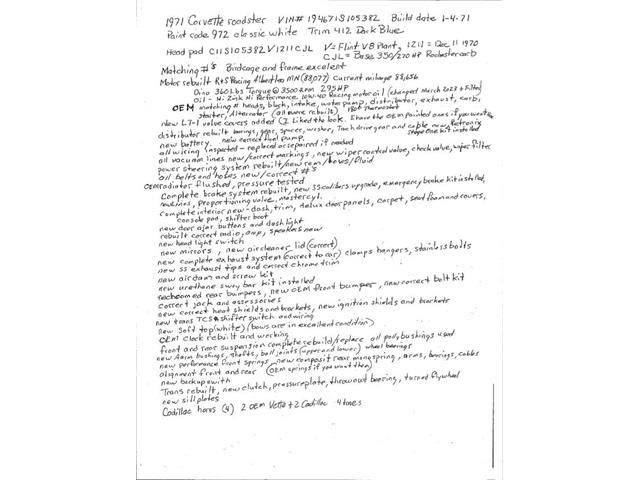 1971 Corvette roadster VIN# 194671S105382 Build date 1-4-71
Paint code 972 classic white Trim 412 Dark Blue
Head pad C11S105382V1211CJL V=Flint V8 Plant, 1211=Dec 11 1970
CJL = Base 350/270 HP Rochester carb
Matching #'s Birdcage and frame excelent
Motor rebuilt R+S Racing Albertlea MN (88,077) Current milage 88,656
Dino 360 Lbs Torque @ 3500 Rpm 295 HP
Oil - Hi Zink Hi Performance 10W-40 Racing motor oil (changed March 2023 + Filter)
OEM matching #'s heads, block, intake, water pump, distributor, exhaust, carb,
starter, Alternator (all were rebuilt) 180° Thermostat
new LT-1 valve covers added (I liked the look. I have the OEM painted ones if you want them
distributor rebuilt bearings, gear, spacer, washer, Tach drive gear and cable new, Petronix
stage one kit installed
new battery. new correct fuel pump.
all wiring inspected - replaced or repaired if needed
all vacuum lines new/correct markings, new wiper control valve, check valve, water filter
power steering system rebuilt/new ram/hoses/fluid
all belts and hoses new/correct #'s
OEM radiator flushed, pressure tested
Complete brake system rebuilt, new SS calibers upgrade, emergency brake kit installed,
new lines, proportioning valve, mastercyl.
complete interior new - dash, trim, delux door panels, carpet, seat foam and covers,
console pad, shifter boot
new door ajar buttons and dash light
rebuilt correct radio, amp, speakers new
new head light switch
new mirrors, new aircleaner lid (correct)
new complete exhaust system (correct to car) clamps hangers, stainless bolts
new SS exhaust tips and correct chrome trim
new airdam and screw kit
new urethane sway bar kit installed
rechromed rear bumpers, new OEM front bumper, new correct bolt kit
correct jack and assessories
new correct heat shields and brackets, new ignition shields and brackets
new trans TCS shifter switch and wiring
new soft top (white) (bows are in excellent condition)
OEM clock rebuilt and working
front and rear suspension complete rebuild/replace all poly bushings used
new Aarm bushings, shafts, ball joints (upper and lower) wheel bearings
new performance front springs, new composit rear mono spring, arms, bearings, cables
alignment front and rear (OEM springs if you want them)
new backup switch
Trans rebuilt, new clutch, pressure plate, throw out bearing, turned flywheel
new sill plates
Cadillac horns (4) 2 OEM Vette + 2 Cadillac 4 tones